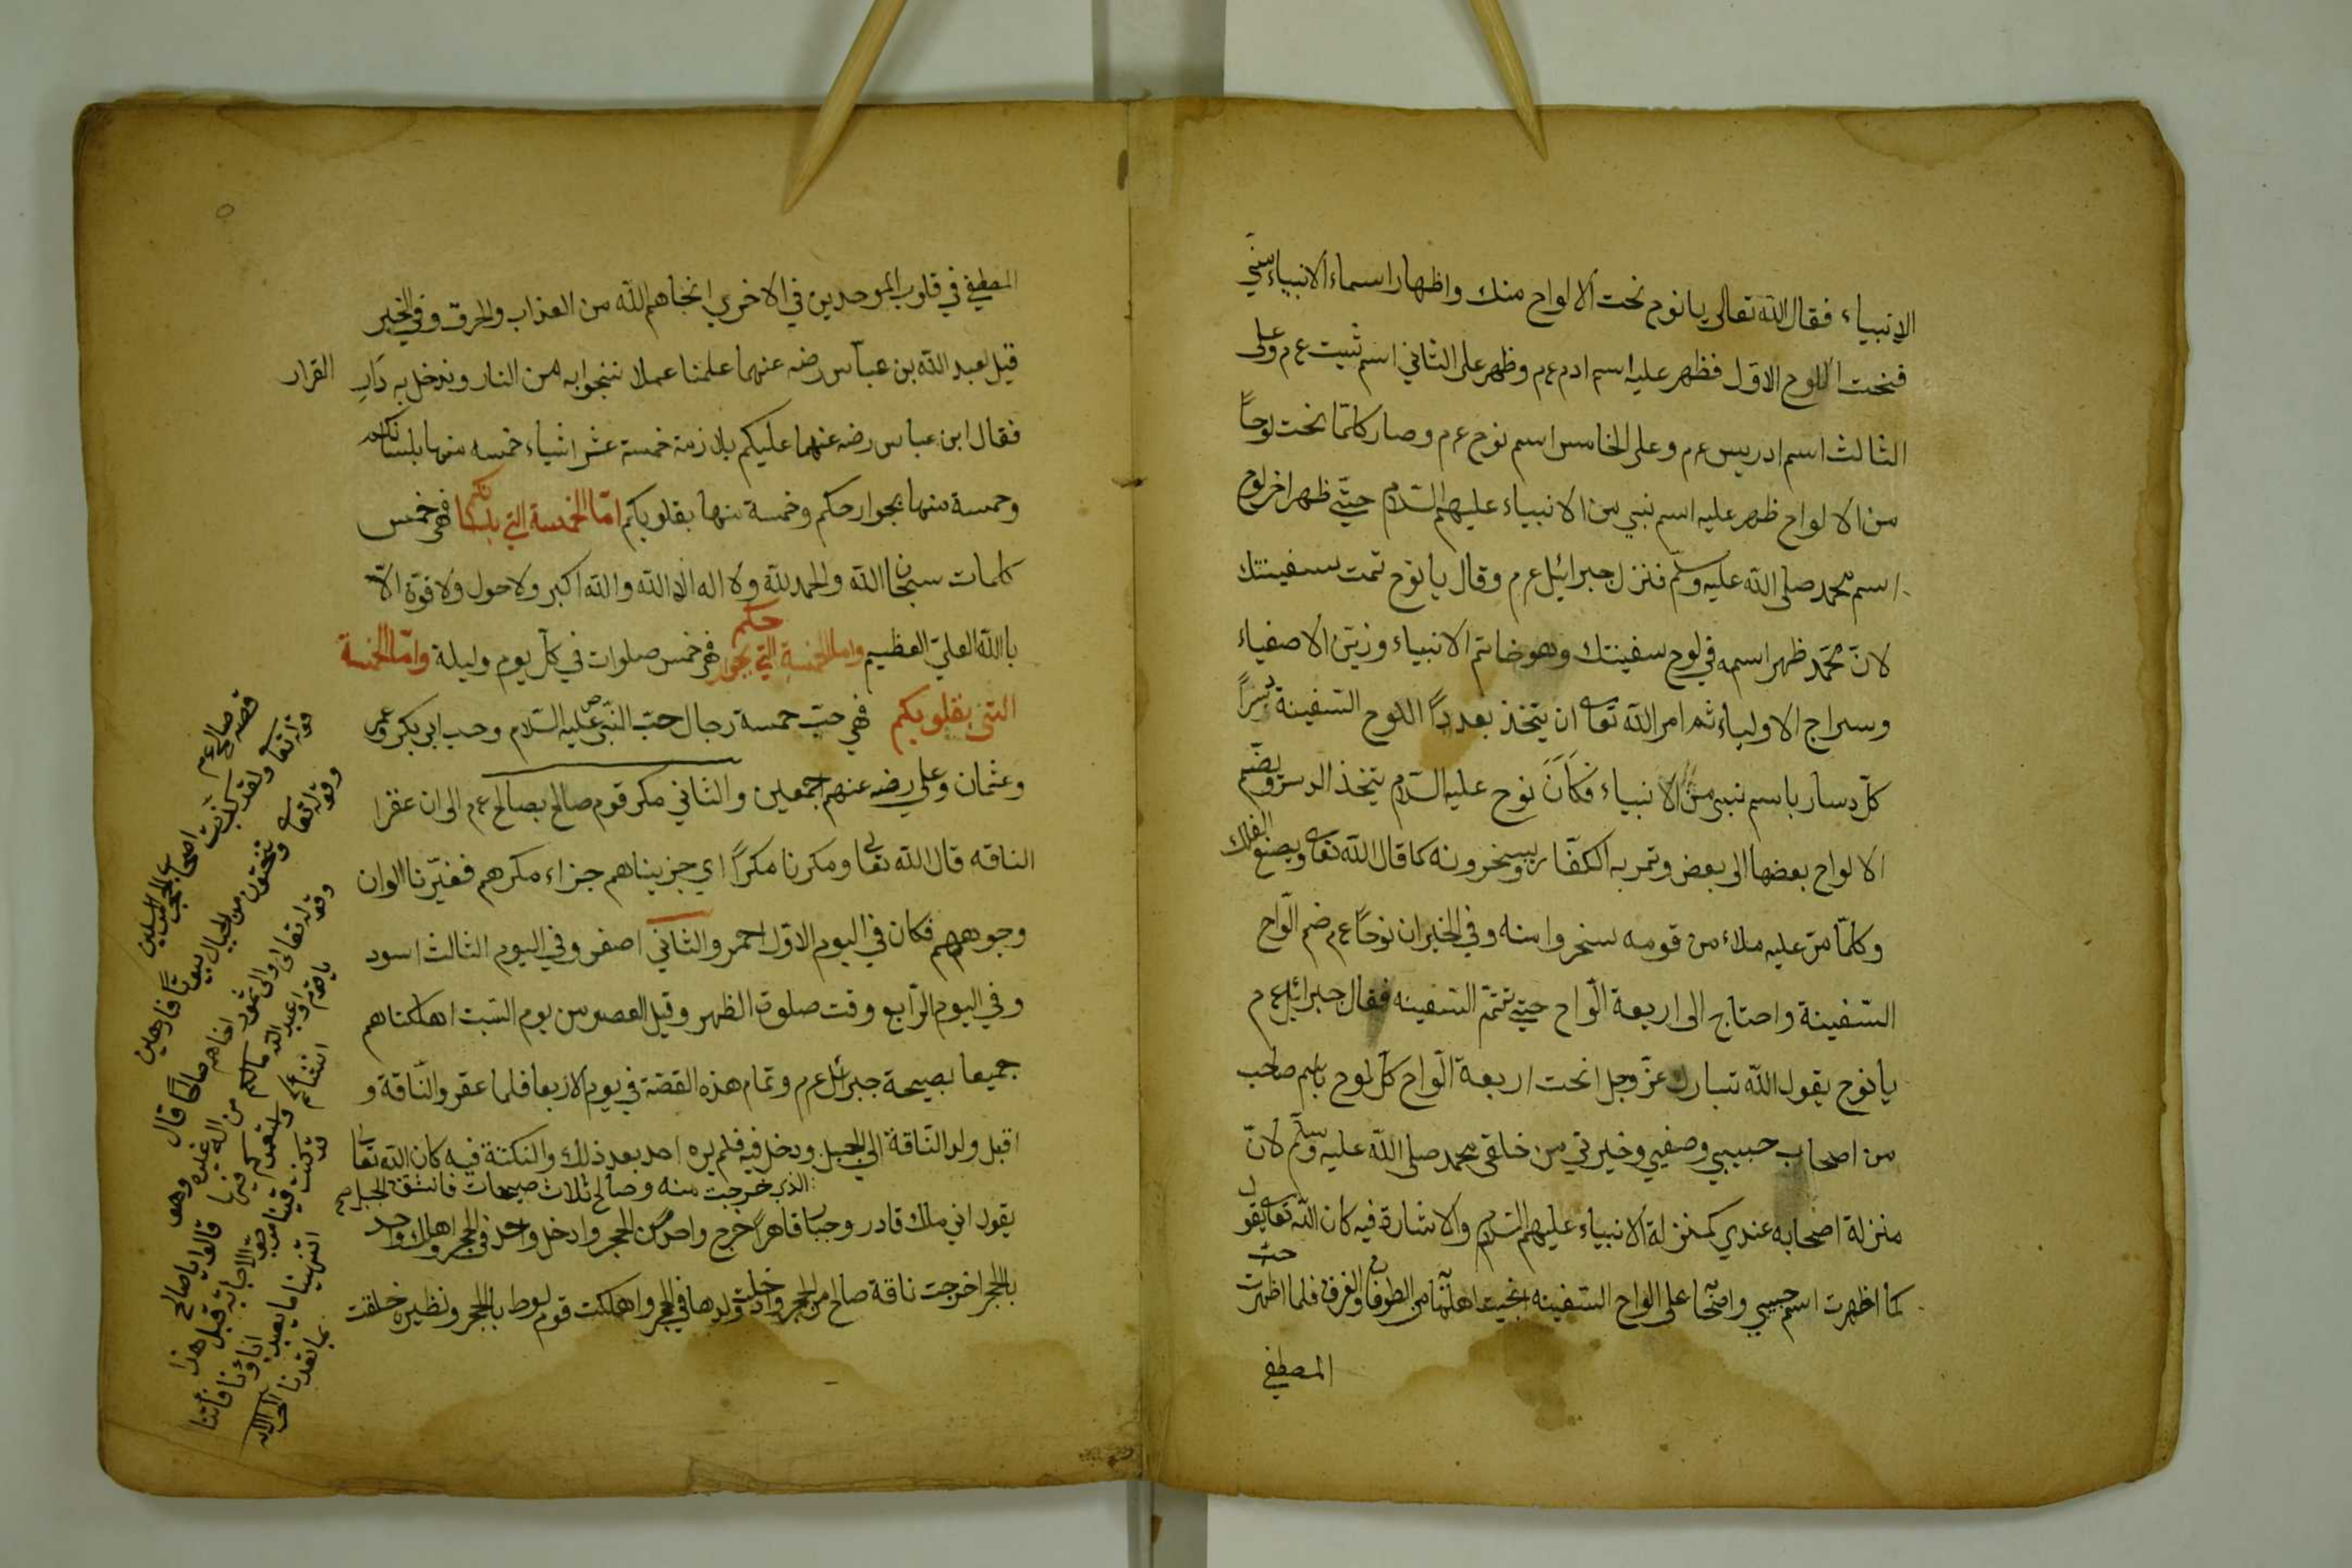 الانبياء فقال الله تعالى يا نوح نحت الالواح منك واظهار اسماء الانبياء منّي
فنحت اللوح الاوّل فظهر عليه اسم ادم عم وظهر على الثاني اسم شيت عم وعلى
الثالث اسم ادريس عم وعلى الخامس اسم نوح عم وصار كلمّا نحت لوحاً
من الالواح ظهر عليه اسم نبي من الانبياء عليهم السّلام حتّى ظهر اخر لوح
اسم محمد صلى الله عليه وسلّم فنزل جبرائيل عم وقال يا نوح تمت سفينتك
لانّ محمّد ظهر اسمه في لوح سفينتك وهو خاتم الانبياء وزين الاصفياء
وسراج الاولياء ثم امر الله تعا ان يتخذ بعدد اللوح السّفينة دسراً
كلّ دسار باسم نبي من الانبياء فكان نوح عليه السّلام يتخذ الدسر ويضمّ
الالواح بعضها الى بعض وتمر به الكفّار ويسخرونه كما قال الله تعا ويصنع الفلك
وكلّما مرّ عليه ملاء من قومه سخروا منه وفي الخبر ان نوحاً عم ضم الّواح
السّفينة واحتاج الى اربعة الّواح حتى تتمّ السّفينه فقال جبرائيل عم
يا نوح يقول الله تبارك عزّ وجل انحت اربعة الّواح كلّ لوح باسم صاحب
من اصحاب حبيبي وصفيي وخيرتي من خلقي محمد صلى الله عليه وسلّم لانّ
منزلة اصحابه عندي كمنزلة الانبياء عليهم السّلام والاشارة فيه كان الله تعا يقول
كما اظهرت اسم حبيبي واصحا على الواح السّفينه انجيت اهلها من الطوفان والغرق فلما اظهرت حبّ
المصطفى
المصطفى في قلوب الموحدين في الاخري انجاهم الله من العذاب والحرق وفي الخبر
قيل لعبد الله بن عباس رضه عنهما علمنا عملا ننجوا به من النار وندخل به دار القرار
فقال ابن عباس رضه عنهما عليكم بلازمة خمسة عشر اشياء خمسه منها بلسانكم
وخمسة منها بجوارحكم وخمسة منها بقلوبكم امّا الخمسة التي بلسانكم فهي خمس
كلمات سبحان الله والحمد لله ولا اله الا الله والله اكبر ولا حول ولا قوّة الّا
با الله العليّ العظيم واما الخمسة التي بجوارحكم فهي خمس صلوات في كلّ يوم وليلة وامّا الخمسة
التي بقلوبكم فهي حبّ خمسة رجال حبّ النبّي عليه السّلام وحب ابي بكر وعمر
وعثمان وعلي رضه عنهم اجمعين والثاني مكر قوم صالح بصالح عم الى ان عقرا
الناقه قال الله تعا ومكرنا مكراً اي جزيناهم جزاء مكرهم فغيّرنا الوان
وجوههم فكان في اليوم الاوّل احمر والثاني اصفر وفي اليوم الثالث اسود
وفي اليوم الرّابع وقت صلوة الظهر وقيل العصر من يوم السّبت اهلكناهم
جميعا بصيحة جبرائل عم وتمام هذه القصّة في يوم الاربعا فلما عقر والنّاقة و
اقبل ولد النّاقة الى الجبل ودخل فيه فلم يره احد بعد ذلك والنكتة فيه كان الله تعا
الذي خرجت منه وصالح ثلاث صيحات فانشق الجبل
يقول اني ملك قادر وجبار قاهر اخرج واحد من الحجر وادخل واحد في الحجر واهلك واحد
بالحجر اخرجت ناقة صالح من الحجر وادخلت ولدها في الحجر واهلكت قوم لوط بالحجر ونظيره خلقت
قصه صالح عم
قوله تعا ولقد كذبت اصحاب الحجر المرسلين
وقوله تعا وتنحتون من الجبال بيوتاً فارهين
وقوله تعالى والى ثمود اخاهم صالحاً قال
يا قوم اعبدوا الله مالكم من اله غيره هو
انشأكم واستعمركم فيها قالوا يا صالح
قد كنت فينا قبل هذا